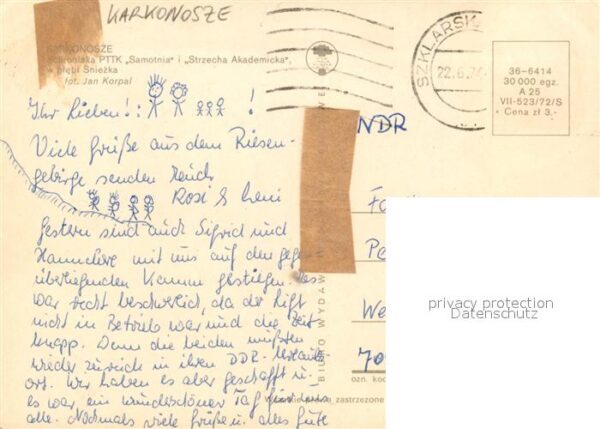 KARKONOSZE
KARKONOSZE
Schroniska PTTK „Samotnia" i „Strzecha Akademicka",
w głębi Śnieżka
fot. Jan Korpal
SZKLARSK
22.6.74
36-6414
30 000 egz.
A 25
VII-523/72/S
Cena zł 3.-
Ihr Lieben! : !
Viele Grüße aus dem Riesen-
gebirge senden Euch
Rosi & Leni
Gestern sind auch Sigrid und
Hannelore mit uns auf den gegen-
überliegenden Kamm gestiegen. Es
war recht beschwerlich, da der Lift
nicht in Betrieb war und die Zeit
knapp. Denn die beiden mußten
wieder zurück in ihren DDR-Urlaubs-
ort. Wir haben es aber geschafft u.
es war ein wunderschöner Tag für uns
alle. Nochmals viele Grüße u. alles Gute
NDR
Fa
Pe
We
70
BIURO WYDAW
ozn. kod
zastrzeżone
privacy protection
Datenschutz